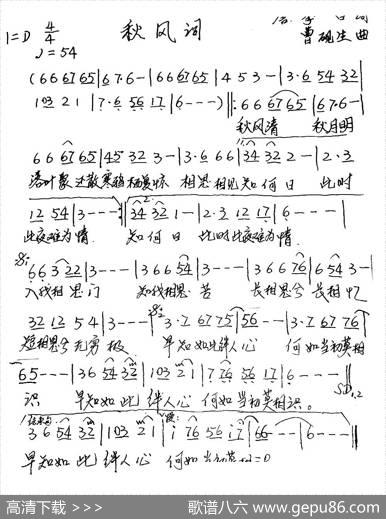 秋风词
1=D 4/4
♩=54
唐 李白 词
曹砚生 曲
(6 6 67 65 | 6 7·6 - | 6 6 67 65 | 4 5 3 - | 3·6 54 32 |
103 21 | 7·6 56 17 | 6 - - -) ‖: 6 6 67 65 | 67·6 - |
秋风清 秋月明
6 6 67 65 | 45 32 3 - | 3·6 66 | 34 32 2 - | 2·3
落叶聚还散寒鸦栖复惊 相思相见知何日 此时
12 54 | 3 - - - :‖ 34 32 1 - | 2·3 12 17 | 6 - - - |
此夜难为情 知何日 此时此夜难为情
6 6 3 22 | 3 - - - | 3 6 6 54 | 3 - - - | 3 6 6 76 | 6 54 3 - |
入我相思门 知我相思苦 长相思兮长相忆
32 12 5 4 | 3 - - - | 3·7 67 75 | 56 - - | 3·7 67 76 |
短相思兮无穷极 早知如此绊人心 何如当初莫相
65 - - - | 36 54 32 | 103 2 1 | 7 76 56 17 | 6 - - - ‖
识 早知如此绊人心 何如当初莫相识。
3 6 54 32 | 103 2 1 | i 76 56 i7 | 66 - - | 6 - - - ‖
早知如此绊人心 何如当初莫相识
高清下载 >>>
歌谱八六 www.gepu86.com